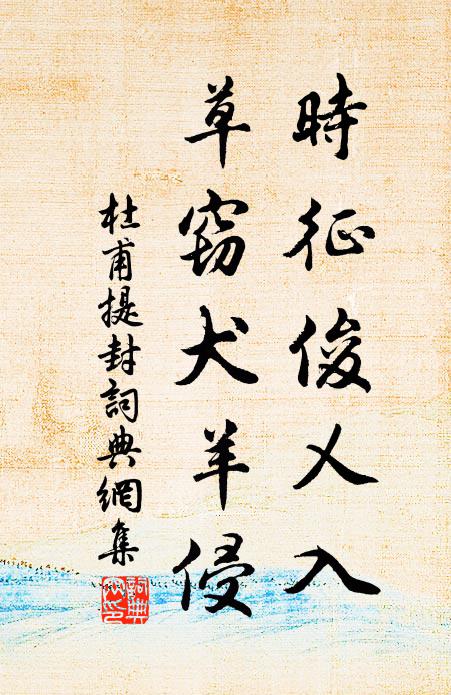 時征俊乂入
草窃犬羊侵
杜甫提封詞典網集